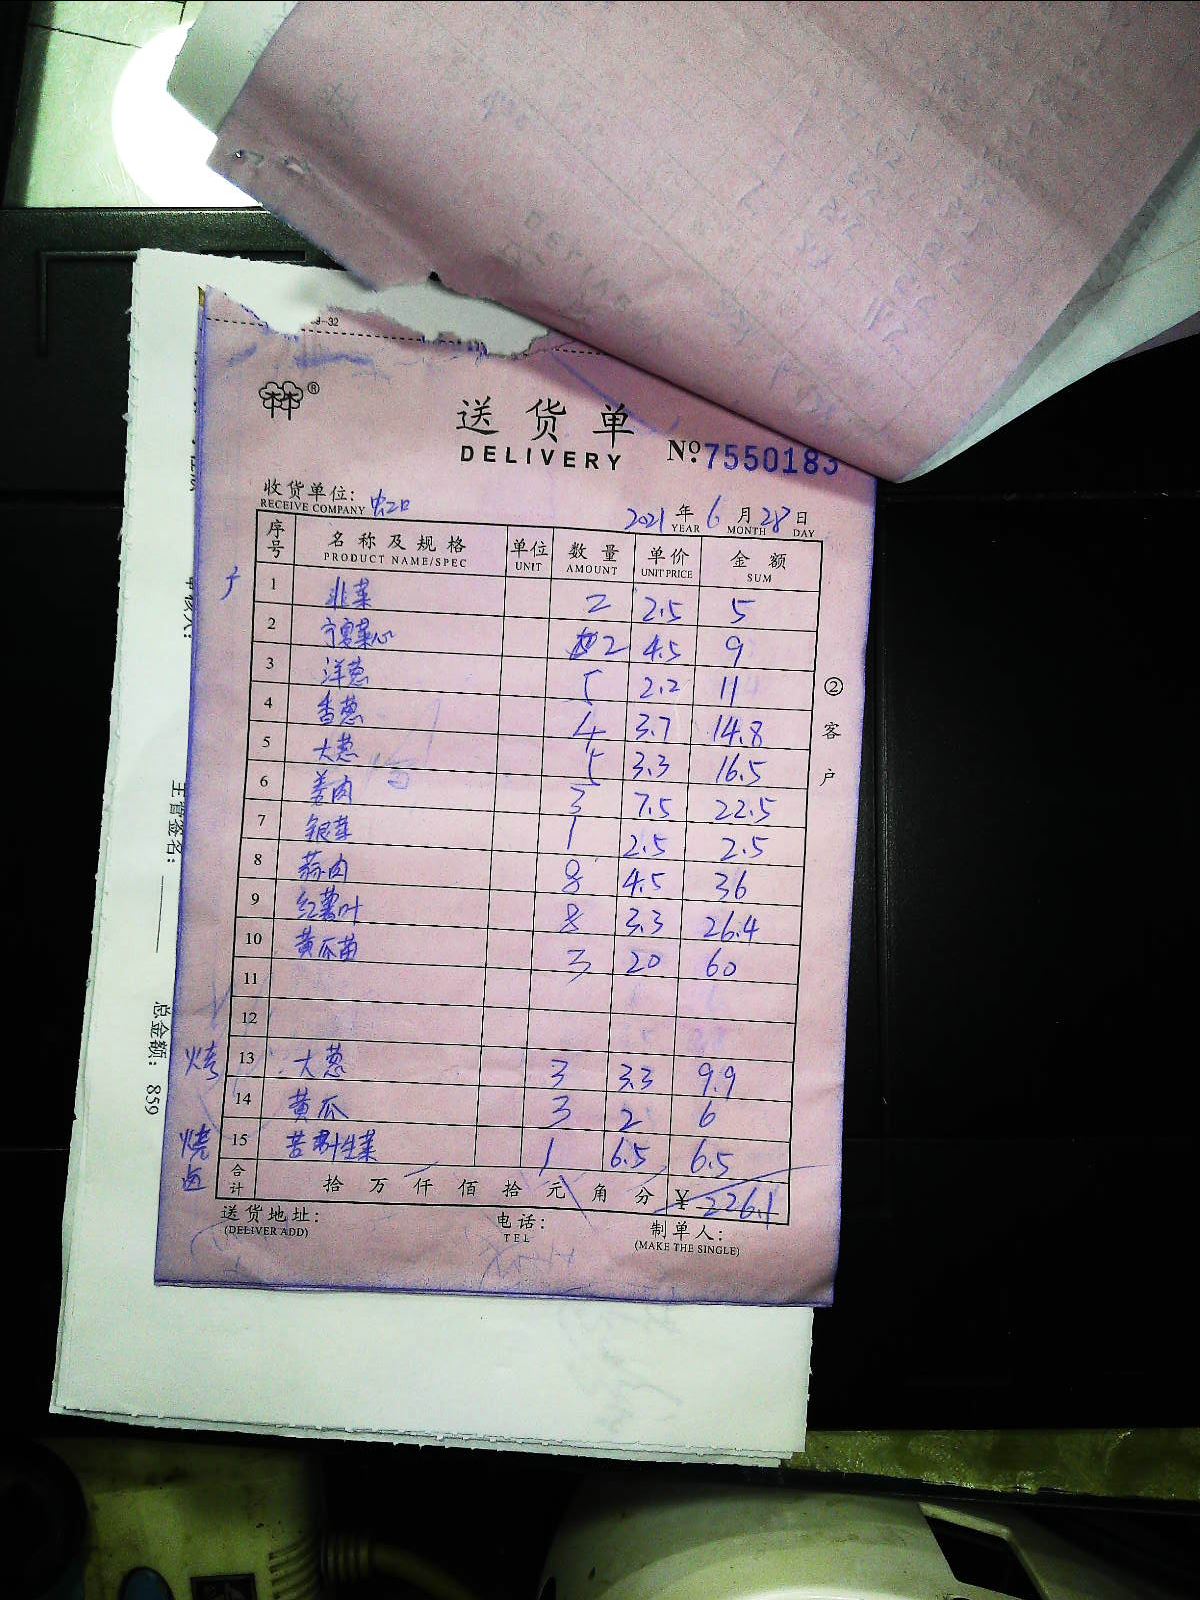 9-32
®
送货单
DELIVERY
No:7550183
收货单位: 虹口
RECEIVE COMPANY
2021 年 6 月 28 日
YEAR MONTH DAY
序号 名称及规格 单位 数量 单价 金额
PRODUCT NAME/SPEC UNIT AMOUNT UNIT PRICE SUM
1 韭菜 2 2.5 5
2 宁夏菜心 2 4.5 9
3 洋葱 5 2.2 11
4 香葱 4 3.7 14.8
5 大葱 5 3.3 16.5
6 姜肉 3 7.5 22.5
7 银芽 1 2.5 2.5
8 蒜肉 8 4.5 36
9 红薯叶 8 3.3 26.4
10 黄瓜苗 3 20 60
11
12
烤 13 大葱 3 3.3 9.9
14 黄瓜 3 2 6
烧卤 15 苦叶生菜 1 6.5 6.5
合计 拾 万 仟 佰 拾 元 角 分 ¥ 226.1
送货地址: 电话: 制单人:
(DELIVER ADD) TEL (MAKE THE SINGLE)
② 客户
主管签名:
总金额: 859